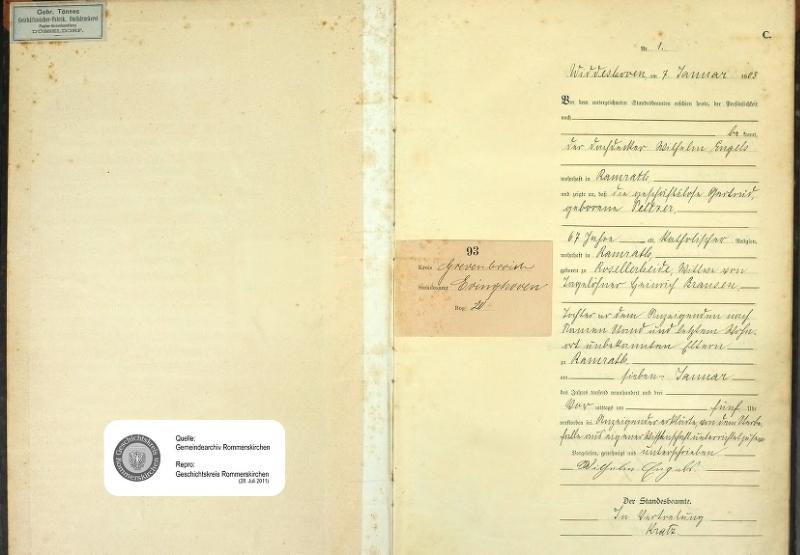 Gebr. Tönnes
Geschäftsbücher-Fabrik, Buchdruckerei
DÜSSELDORF.
C.
Nr. 1.
Widdeshoven am 7. Januar 1903
Vor dem unterzeichneten Standesbeamten erschien heute, der Persönlichkeit
nach
be kannt,
der Dachdecker Wilhelm Engels
wohnhaft in Ramrath
und zeigte an, daß die geschäftslose Gertrud,
geborene Peltzer,
67 Jahre alt, katholischer Religion,
wohnhaft in Ramrath,
geboren zu Rosellerheide, Witwe von
Tagelöhner Heinrich Kransen,
Tochter der dem Anzeigenden nach
Namen Stand und letztem Wohn-
ort unbekannten Eltern
zu Ramrath
am sieben Januar
des Jahres tausend neunhundert und drei
Vor mittags um fünf Uhr
verstorben sei. Anzeigender erklärte, von dem Sterbe-
falle aus eigener Wissenschaft unterrichtet zu sein.
Vorgelesen, genehmigt und unterschrieben
Wilhelm Engels.
Der Standesbeamte.
In Vertretung
Kratz
93
Kreis Grevenbroich
Standesamt Evinghoven
Reg: 20
Geschichtskreis
Rommerskirchen
Quelle:
Gemeindearchiv Rommerskirchen
Repro:
Geschichtskreis Rommerskirchen
(28. Juli 2011)